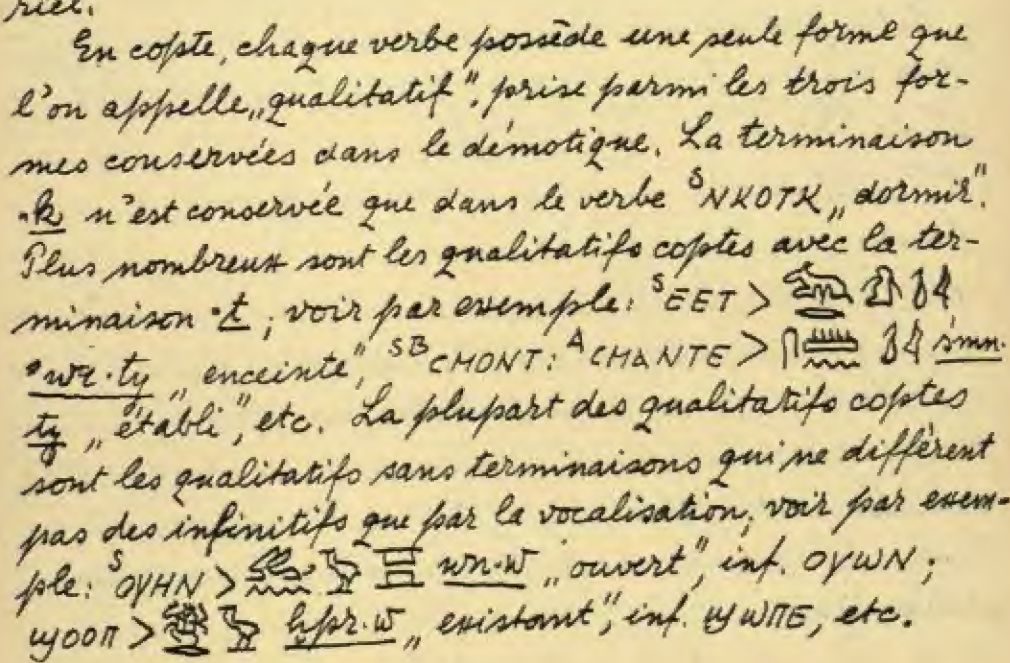 riel.
En copte, chaque verbe possède une seule forme que
l'on appelle „qualitatif", prise parmi les trois for-
mes conservées dans le démotique. La terminaison
·k n'est conservée que dans le verbe ˢNKOTK „dormir".
Plus nombreux sont les qualitatifs coptes avec la ter-
minaison ·t, voir par exemple: ˢEET >
·ty „enceinte", ˢᴮCMONT: ᴬCMANTE > smn·
ty „établi", etc. La plupart des qualitatifs coptes
sont les qualitatifs sans terminaisons qui ne diffèrent
pas des infinitifs que par la vocalisation, voir par exem-
ple: ˢOYHN > wn·w „ouvert", inf. OYWN;
ϣOOΠ > ḫpr·w „existant", inf. ϣWΠE, etc.